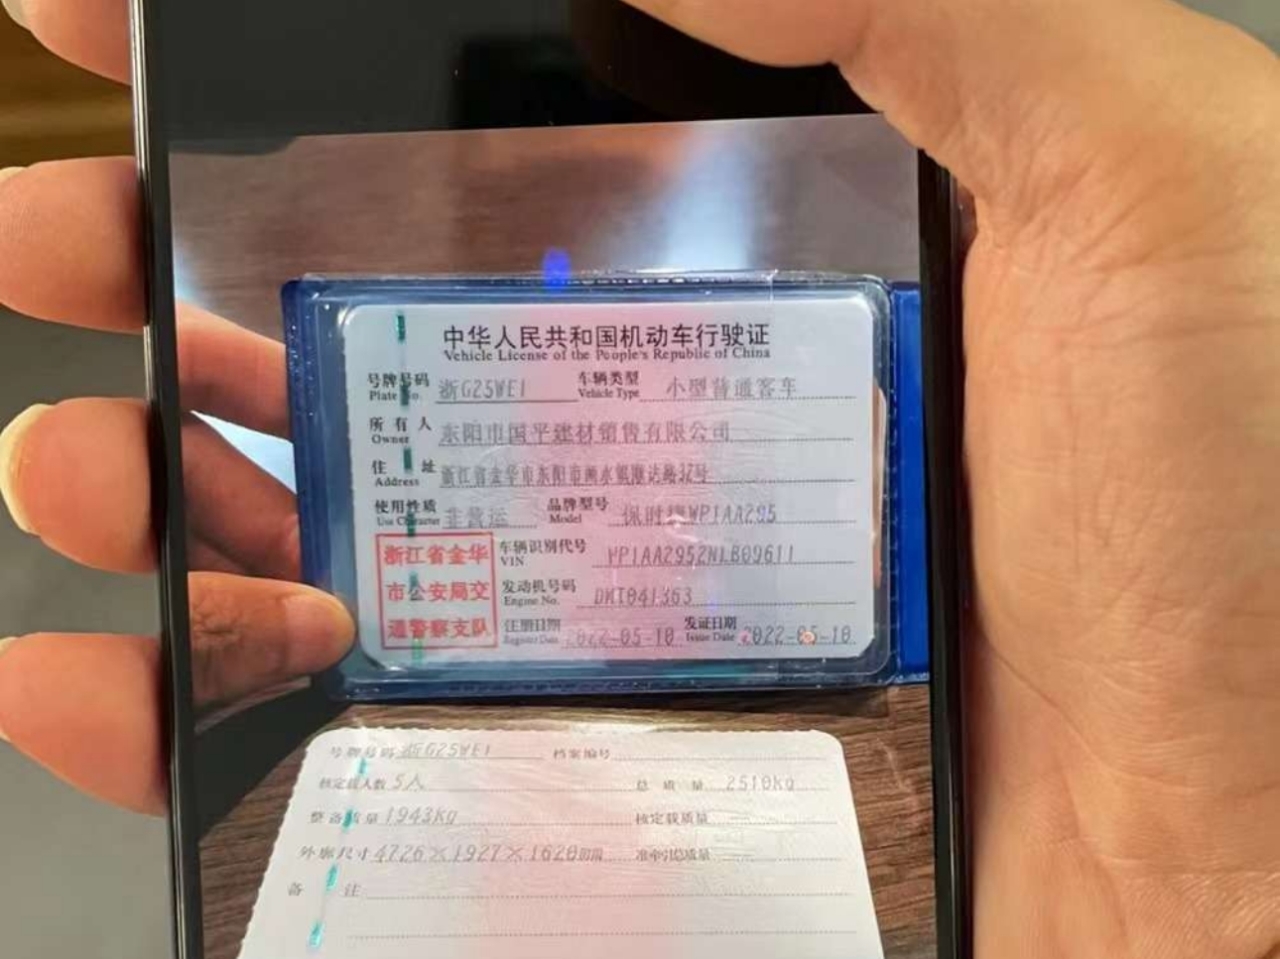 中华人民共和国机动车行驶证
Vehicle License of the People's Republic of China
号牌号码 浙G25WE1 车辆类型 小型普通客车
Plate No. Vehicle Type
所有人 东阳市国平建材销售有限公司
Owner
住址 浙江省金华市东阳市画水镇隆达路32号
Address
使用性质 非营运 品牌型号 保时捷WP1AA295
Use Character Model
浙江省金华
市公安局交
通警察支队
车辆识别代号 WP1AA2952NLB09611
VIN
发动机号码 DMT041363
Engine No.
注册日期 2022-05-10 发证日期 2022-05-10
Register Date Issue Date
号牌号码 浙G25WE1 档案编号
核定载人数 5人 总质量 2510Kg
整备质量 1943Kg 核定载质量 --
外廓尺寸 4726×1927×1620mm 准牵引总质量 --
备注